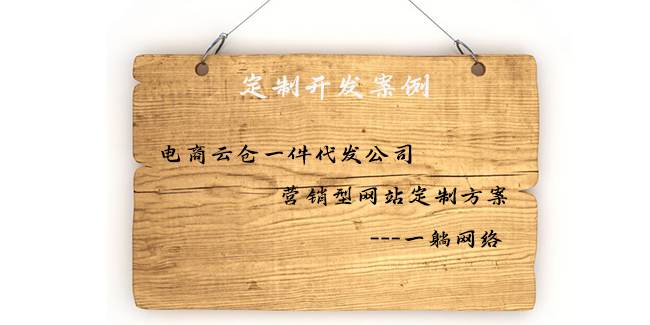 定制开发案例
电商云仓一件代发公司
营销型网站定制方案
---一躺网络